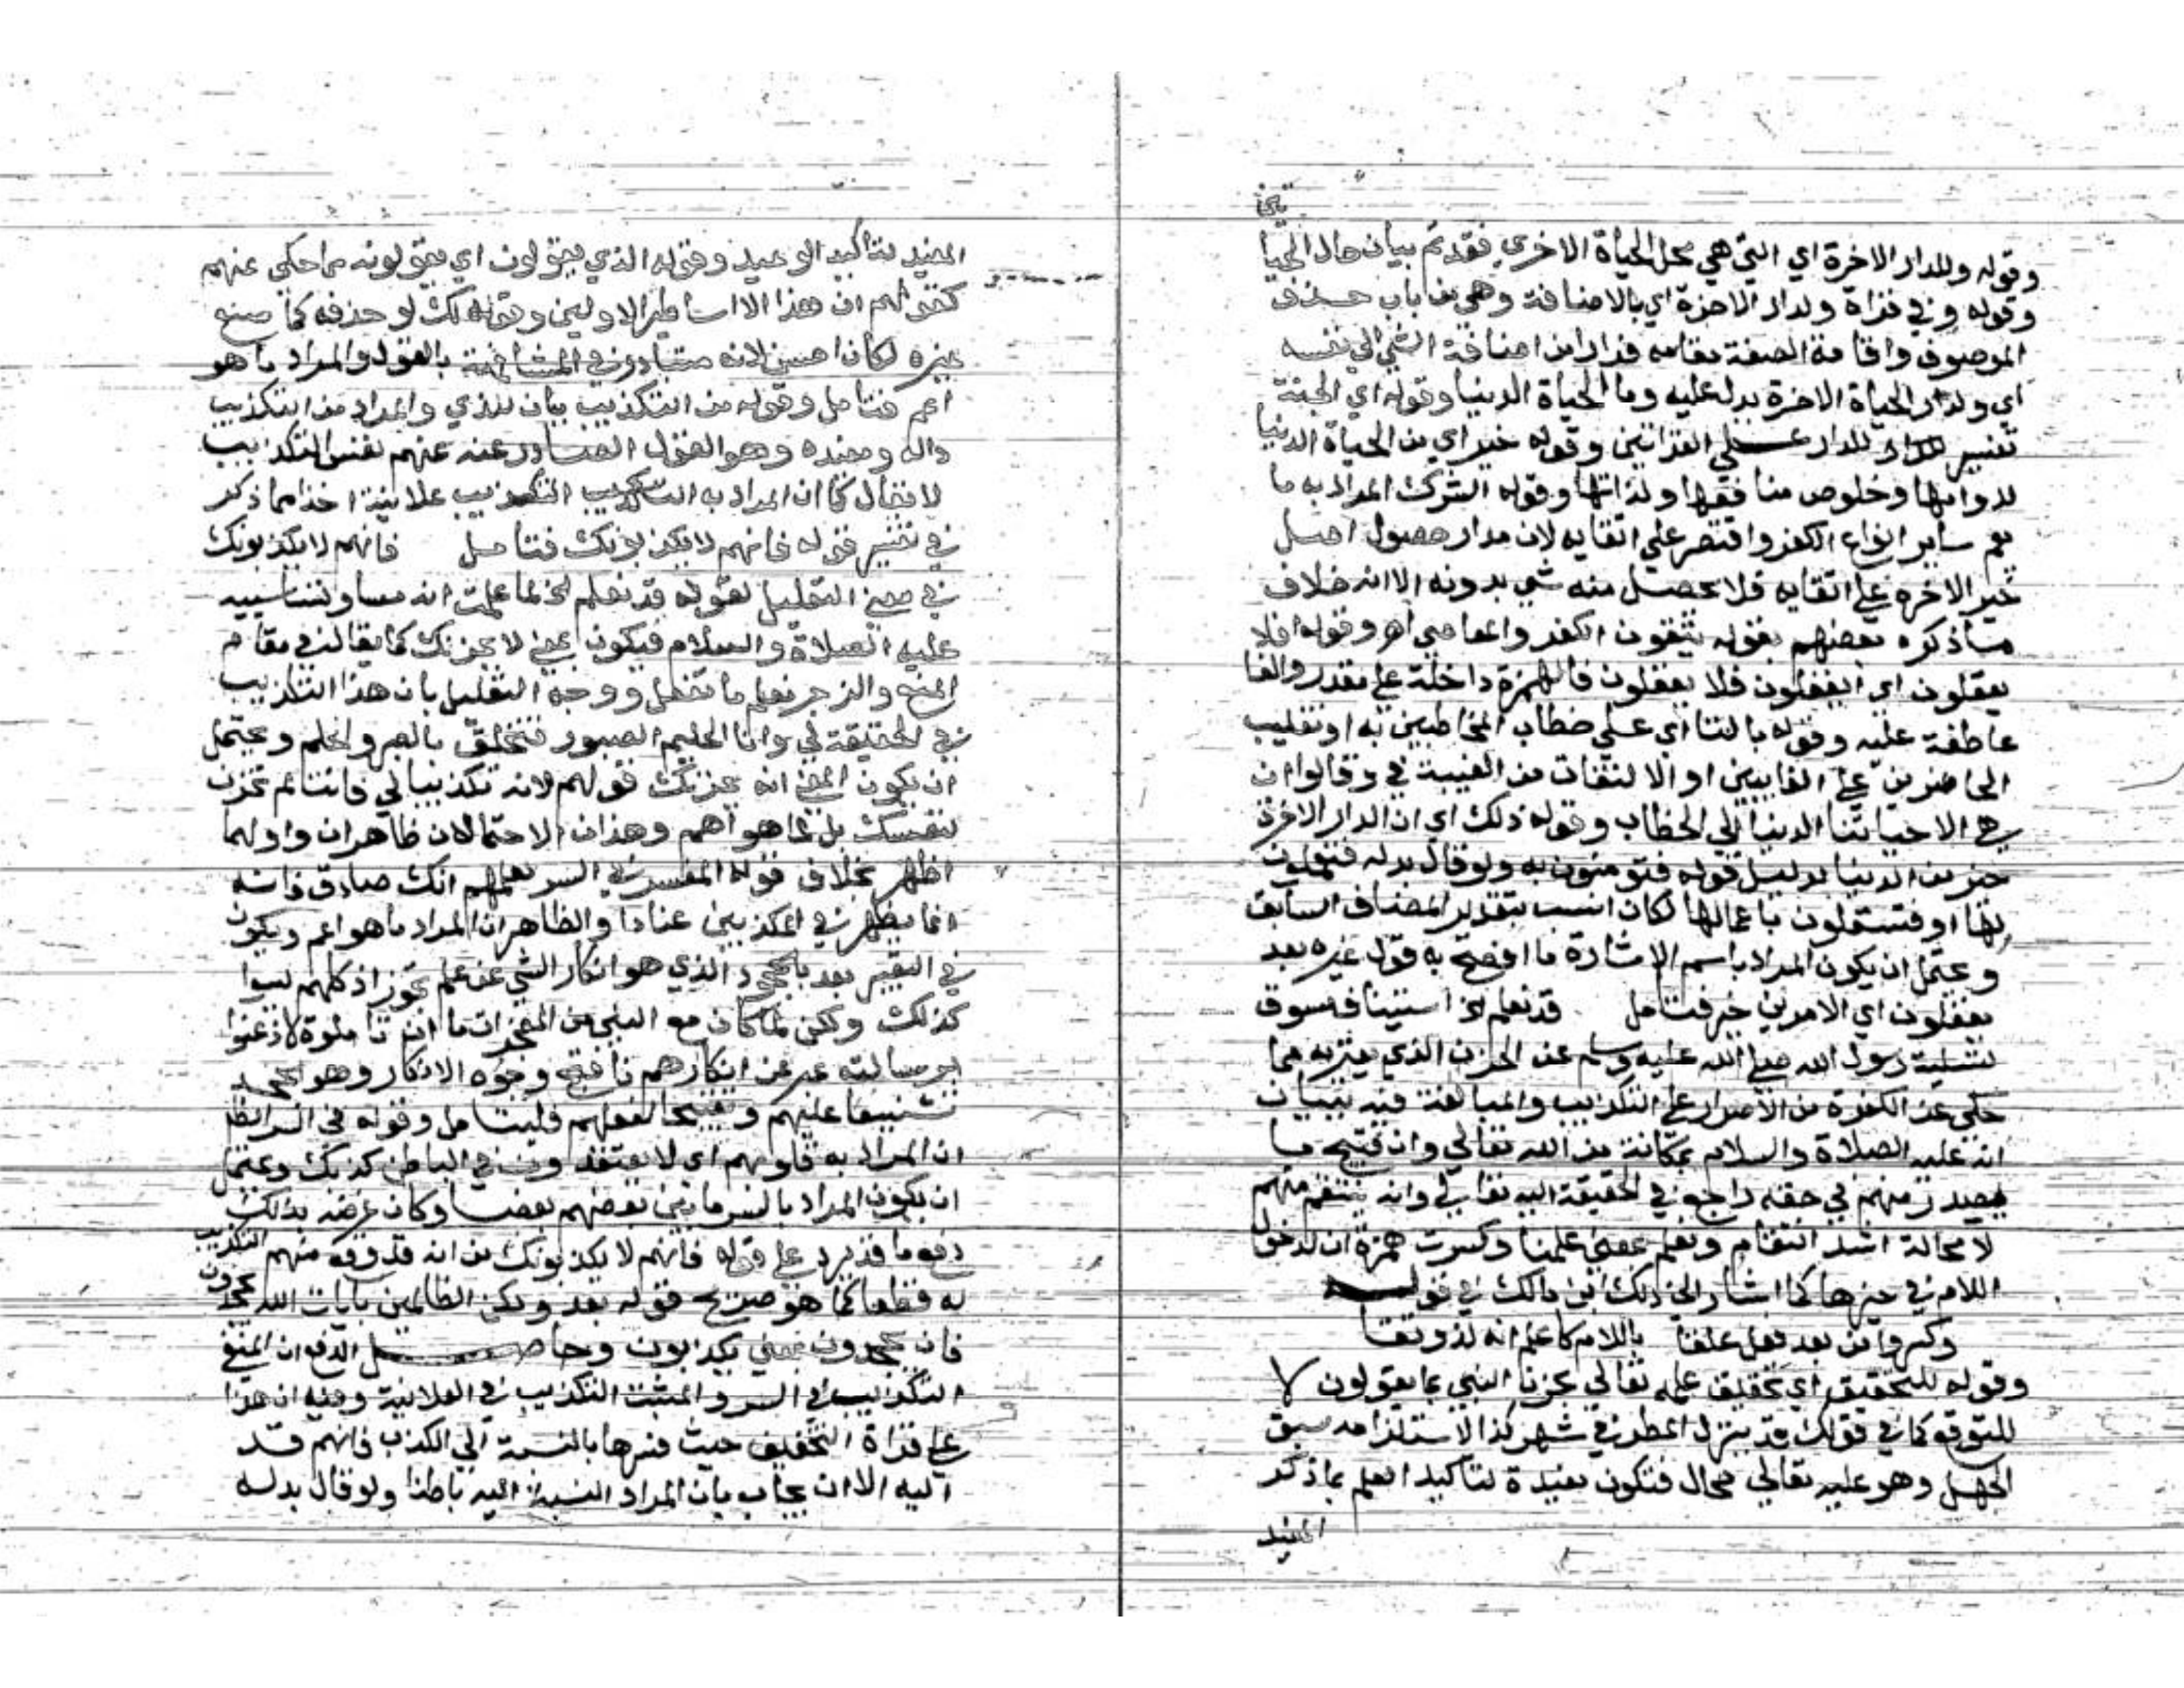 وقوله وللدار الاخرة اي التي هي محل الحياة الاخري فقد تم بيان حال الحيا
تين
وقوله وفي قراة ولدار الاخرة اي بالاضافة وهي من باب حذف
الموصوف واقامة الصفة مقامه فرارا من اضافة الشي الي نفسه
اي ولدار الحياة الاخرة بدل عليه وما الحياة الدنيا وقوله اي الجنة
تفسير للدار علي القراتين وقوله خير اي من الحياة الدنيا
لدوامها وخلوص منافعها ولذاتها وقوله الشرك المراد به ما
يعم ساير انواع الكفر واقتصر علي اتقايه لان مدار حصول اصل
خير الاخرة علي اتقايه فلا يحصل منه شي بدونه الا انه خلاف
ما ذكره بعضهم بقوله يتقون الكفر والمعاصي اهـ وقوله افلا
يعقلون اي ايغفلون فلا يعقلون فالهمزة داخلة علي مقدر والفا
عاطفة عليه وقوله بالتا اي علي خطاب المخاطبين به او تغليب
الحاضرين علي الغايبين او الالتفات من الغيبة في وقالوا ان
هي الا حياتنا الدنيا الي الخطاب وقوله ذلك اي ان الدار الاخرة
خير من الدنيا بدليل قوله فتومنون به ولو قال بدله فتعملون
لها او فتشتغلون باعمالها لكان انسب بتقدير المضاف السابق
ويحتمل ان يكون المراد باسم الاشارة ما افصح به قول غيره بعد
يعقلون اي الامرين خير فتامل قد نعلم الخ استيناف مسوق
لتسلية رسول الله صلي الله عليه وسلم عن الحزن الذي يعتريه مما
حكي عن الكفرة من الاصرار علي التكذيب والمبالغة فيه ببيان
انه عليه الصلاة والسلام بمكانة من الله تعالي وان قبيح ما
يصدر منهم في حقه راجع في الحقيقة اليه تعالي وانه ينتقم منهم
لا محالة اشد انتقام ونعلم بمعني علمنا وكسرت همزة ان لدخول
اللام في خبرها كما اشار الي ذلك ابن مالك في قوله
وكسروا من بعد فعل علقا باللام كاعلم انه لذو تقا
وقوله للتحقيق اي تحقيق علمه تعالي بحزن النبي بما يقولون لا
للتوقع كما في قولك قد ينزل المطر في شهر كذا لاستلزامه سبق
الجهل وهو عليه تعالي محال فتكون مفيدة لتاكيد العلم بما ذكر
المفيد
المفيد لتاكيد الوعيد وقوله الذي يقولون اي يقولونه مما حكي عنهم
كقولهم ان هذا الا اساطير الاولين وقوله لك لو حذفه كما صنع
غيره لكان احسن لانه متبادر في المشافهة بالقول والمراد ما هو
اعم فتامل وقوله من التكذيب بيان للذي والمراد من التكذيب
داله ومفيده وهو القول الصادر عنه عنهم نفس التكذيب
لا يقال كما ان المراد به التكذيب علانية اخذا مما ذكر
في تفسير قوله فانهم لا يكذبونك فتامل فانهم لا يكذبونك
في معني التعليل لقوله قد نعلم الخ لما علمت انه مساق لتسليته
عليه الصلاة والسلام فيكون بمعني لا يحزنك كما يقال في مقام
المنع والزجر نعلم ما تفعل ووجه التعليل بان هذا التكذيب
في الحقيقة لي وانا الحليم الصبور فتخلق بالصبر والحلم ويحتمل
ان يكون المعني انه يحزنك قولهم لانه تكذيب لي فانت لم تحزن
لنفسك بل لما هو اهم وهذان الاحتمالان ظاهران واولهما
اظهر بخلاف قوله المفسر في السر لعلمهم انك صادق فانه
انما يظهر في المكذبين عنادا والظاهر ان المراد ما هو اعم ويكون
في التعبير بعد بالجحود الذي هو انكار الشي عن علم تجوز اذ كلهم ليسوا
كذلك ولكن لما كان مع النبي من المعجزات ما ان تاملوه لاذعنوا
برسالته عبر عن انكارهم باقبح وجوه الانكار وهو الجحد
تشنيعا عليهم وتقبيحا لفعلهم فليتامل وقوله في السر الظا
ان المراد به قلوبهم اي لا يعتقدون في الباطن كذبك ويحتمل
ان يكون المراد بالسر ما بين بعضهم بعضا وكان غرضه بذلك
دفع ما قد يرد علي قوله فانهم لا يكذبونك من انه قد وقع منهم التكذيب
له قطعا كما هو صريح قوله بعد ولكن الظالمين بايات الله يجحدون
فان يجحدون بمعني يكذبون وحاصل الدفع ان المنفي
التكذيب في السر والمثبت التكذيب في العلانية وفيه ان هذا
علي قراة التخفيف حيث فسرها بالنسبة الي الكذب فانهم قد
اليه الا ان يجاب بان المراد النسبة اليه باطنا ولو قال بدله